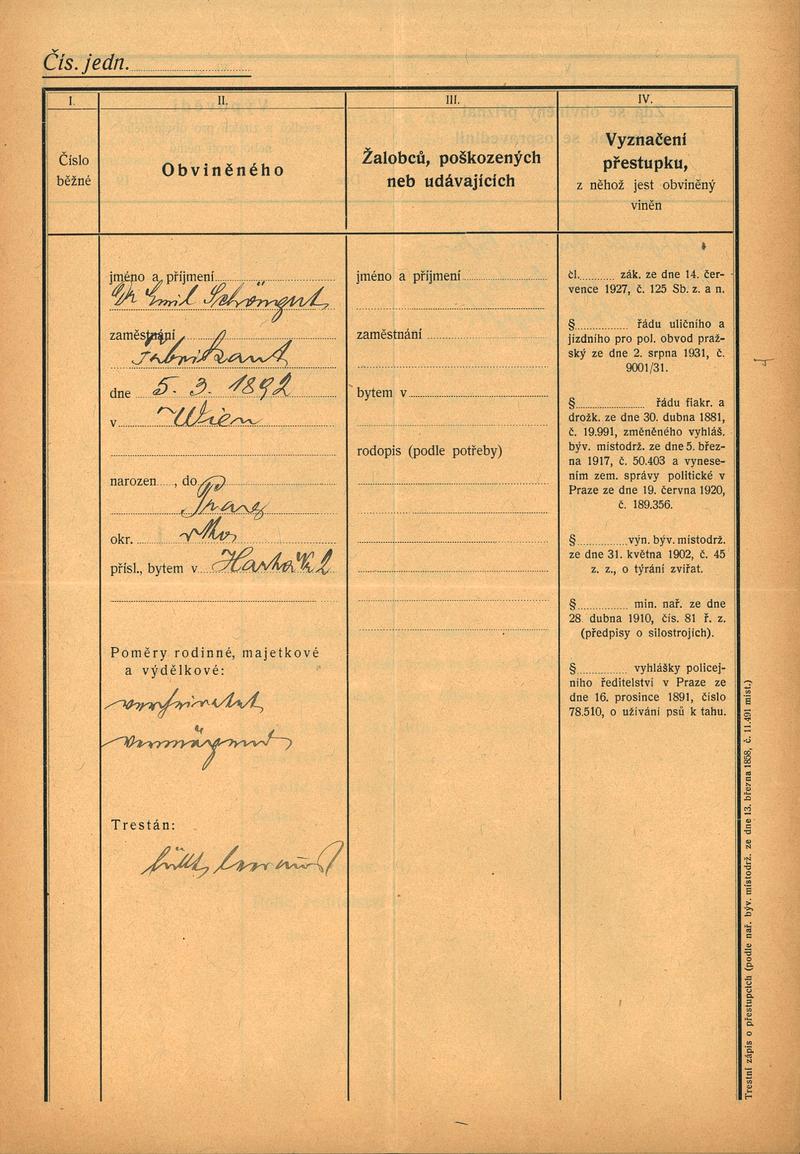 Čís. jedn.
I.
Číslo
běžné
II.
Obviněného
III.
Žalobců, poškozených
neb udávajících
IV.
Vyznačení
přestupku,
z něhož jest obviněný
viněn
jméno a příjmení
Dr Emil Schöngut
zaměstnání
Fabrikant
dne 5. 3. 1892
v Wien
narozen , do
Prag
okr.
přísl., bytem v
Poměry rodinné, majetkové
a výdělkové:
verheiratet
vermögend
Trestán:
jméno a příjmení
zaměstnání
bytem v
rodopis (podle potřeby)
čl. zák. ze dne 14. čer-
vence 1927, č. 125 Sb. z. a n.
§ řádu uličního a
jízdního pro pol. obvod praž-
ský ze dne 2. srpna 1931, č.
9001/31.
§ řádu fiakr. a
drožk. ze dne 30. dubna 1881,
č. 19.991, změněného vyhláš.
býv. místodrž. ze dne 5. břez-
na 1917, č. 50.403 a vynese-
ním zem. správy politické v
Praze ze dne 19. června 1920,
č. 189.356.
§ výn. býv. místodrž.
ze dne 31. května 1902, č. 45
z. z., o týrání zvířat.
§ min. nař. ze dne
28 dubna 1910, čís. 81 ř. z.
(předpisy o silostrojích).
§ vyhlášky policej-
ního ředitelství v Praze ze
dne 16. prosince 1891, číslo
78.510, o užívání psů k tahu.
Trestní zápis o přestupcích (podle nař. býv. místodrž. ze dne 13. března 1858, č. 11.491 míst.)